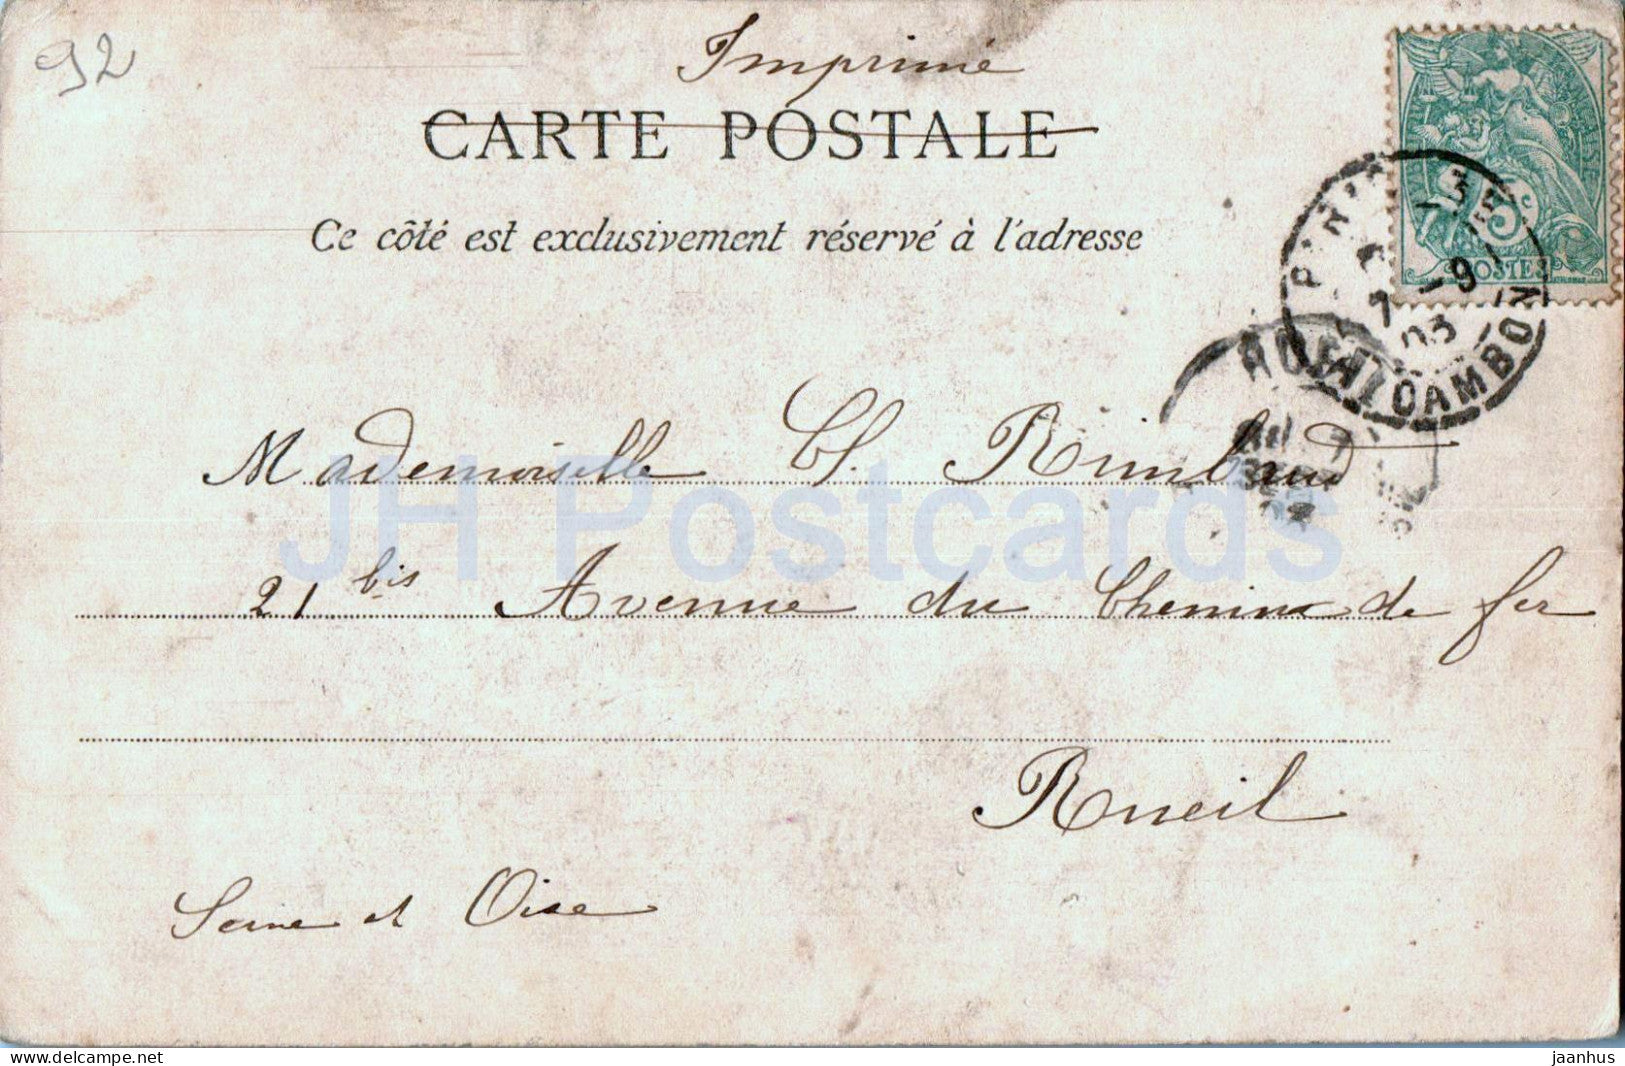 92
Imprimé
CARTE POSTALE
Ce côté est exclusivement réservé à l'adresse
POSTES
7 - 9
03
CAMBON
Mademoiselle Cl. Rimbaud
JH Postcards
21 bis Avenue du Chemin de fer
Rueil
Seine et Oise
HipPostcard
jaanhus